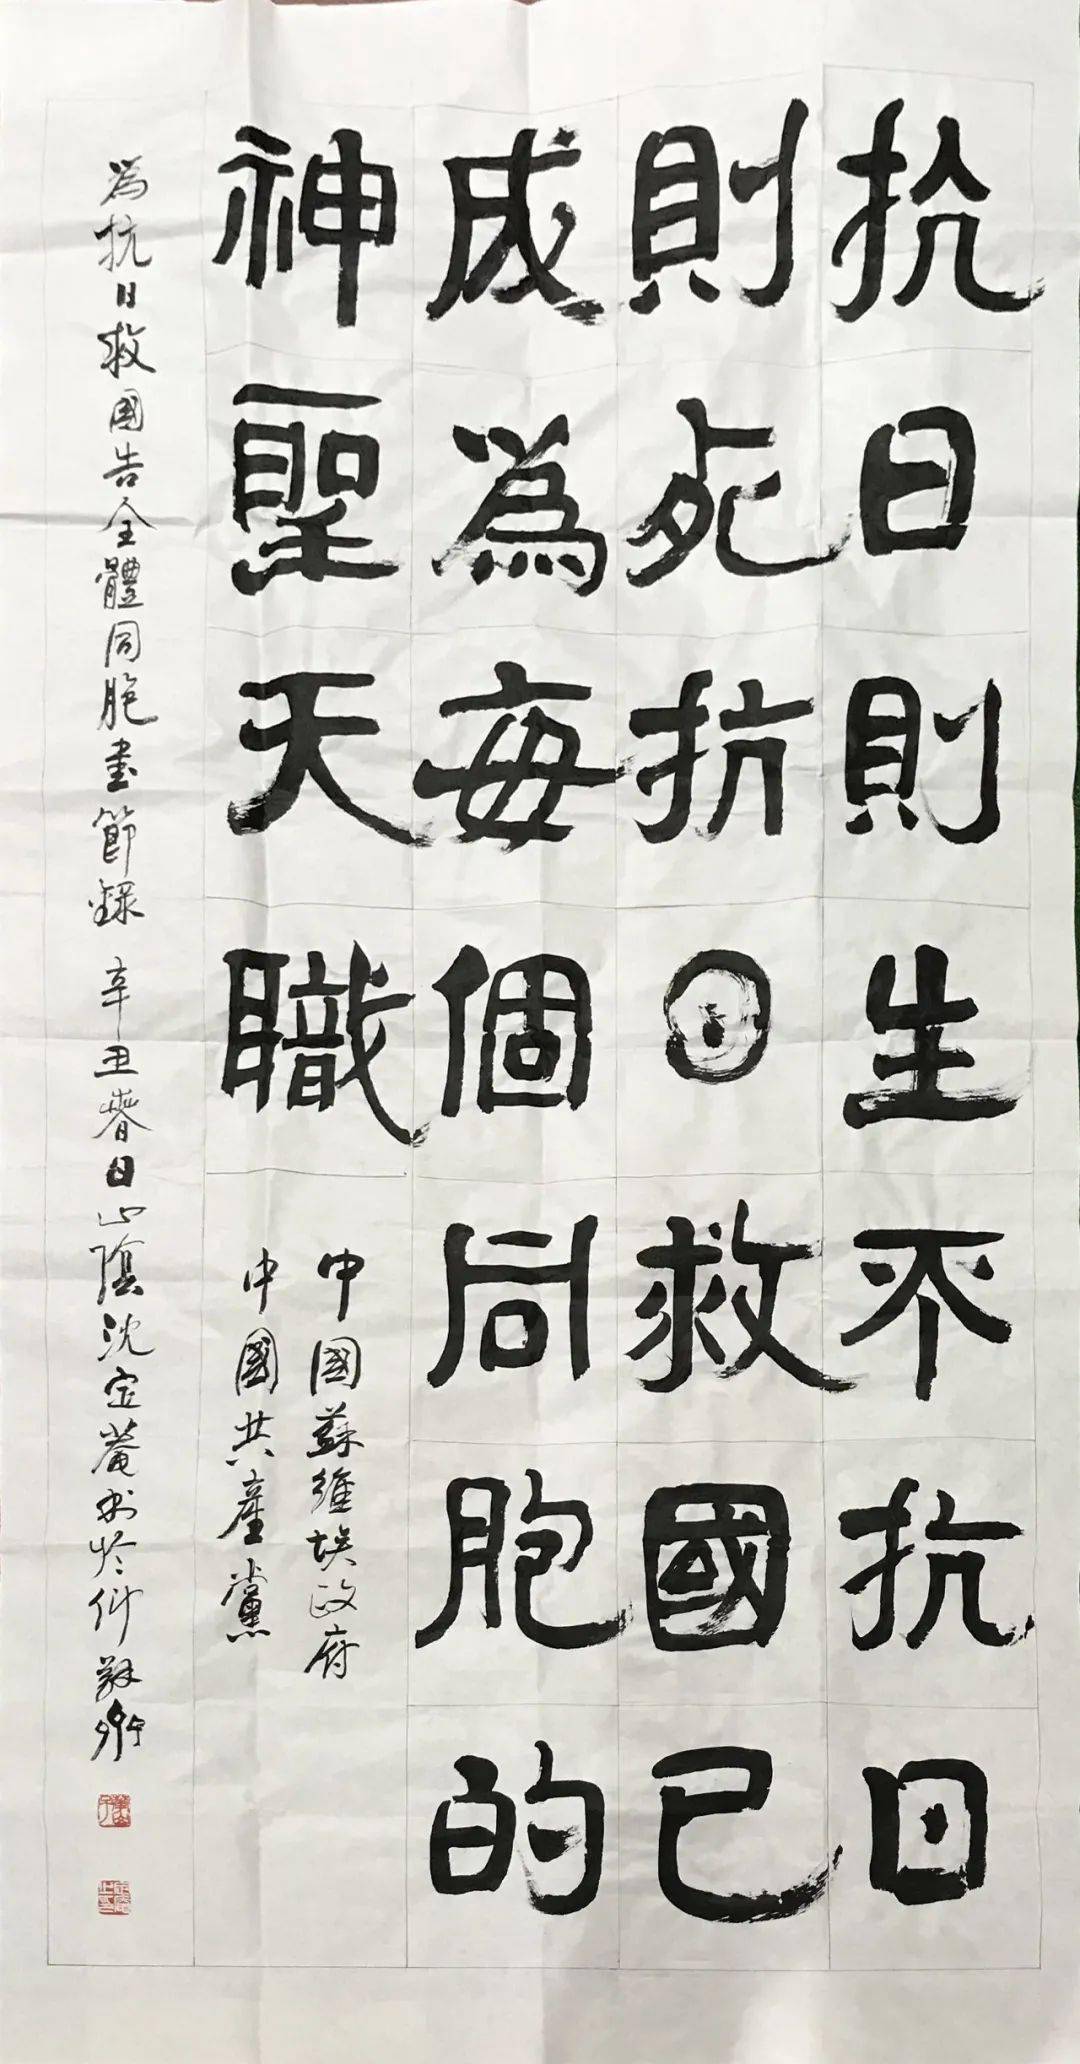 抗日則生不抗日
則死抗日救國已
成為每個同胞的
神聖天職
中國蘇維埃政府
中國共產黨
為抗日救國告全體同胞書節錄 辛丑春日山陰沈定庵書於仰